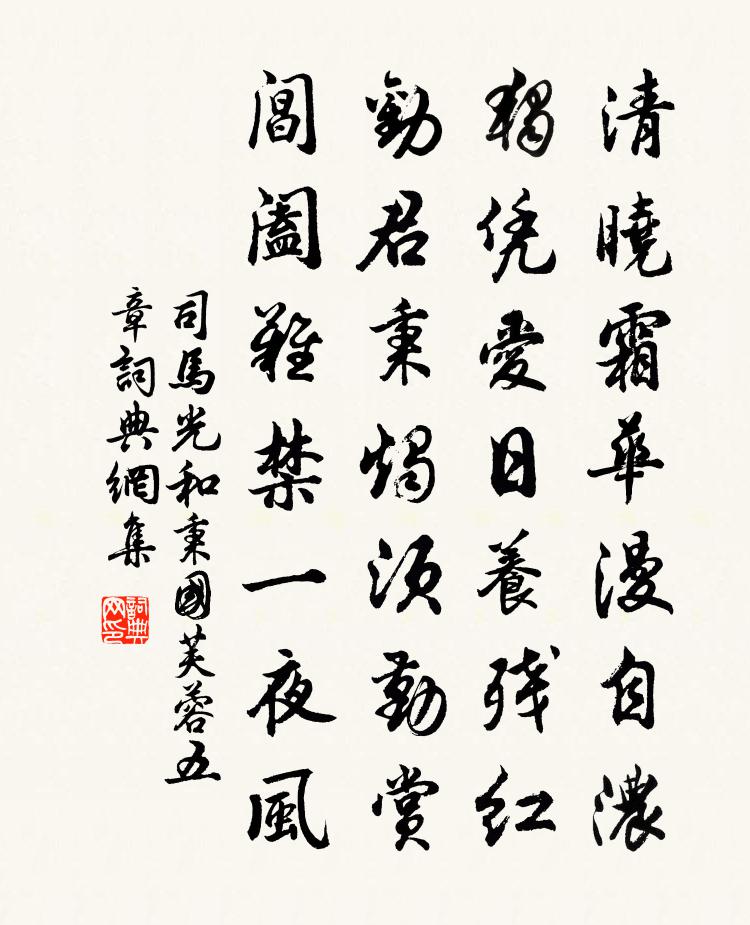 清曉霜華漫自濃
獨凭愛日養残紅
勸君秉燭須勤賞
閶闔難禁一夜風
司馬光和秉國芙蓉五
章詞典網集
詞典
网印